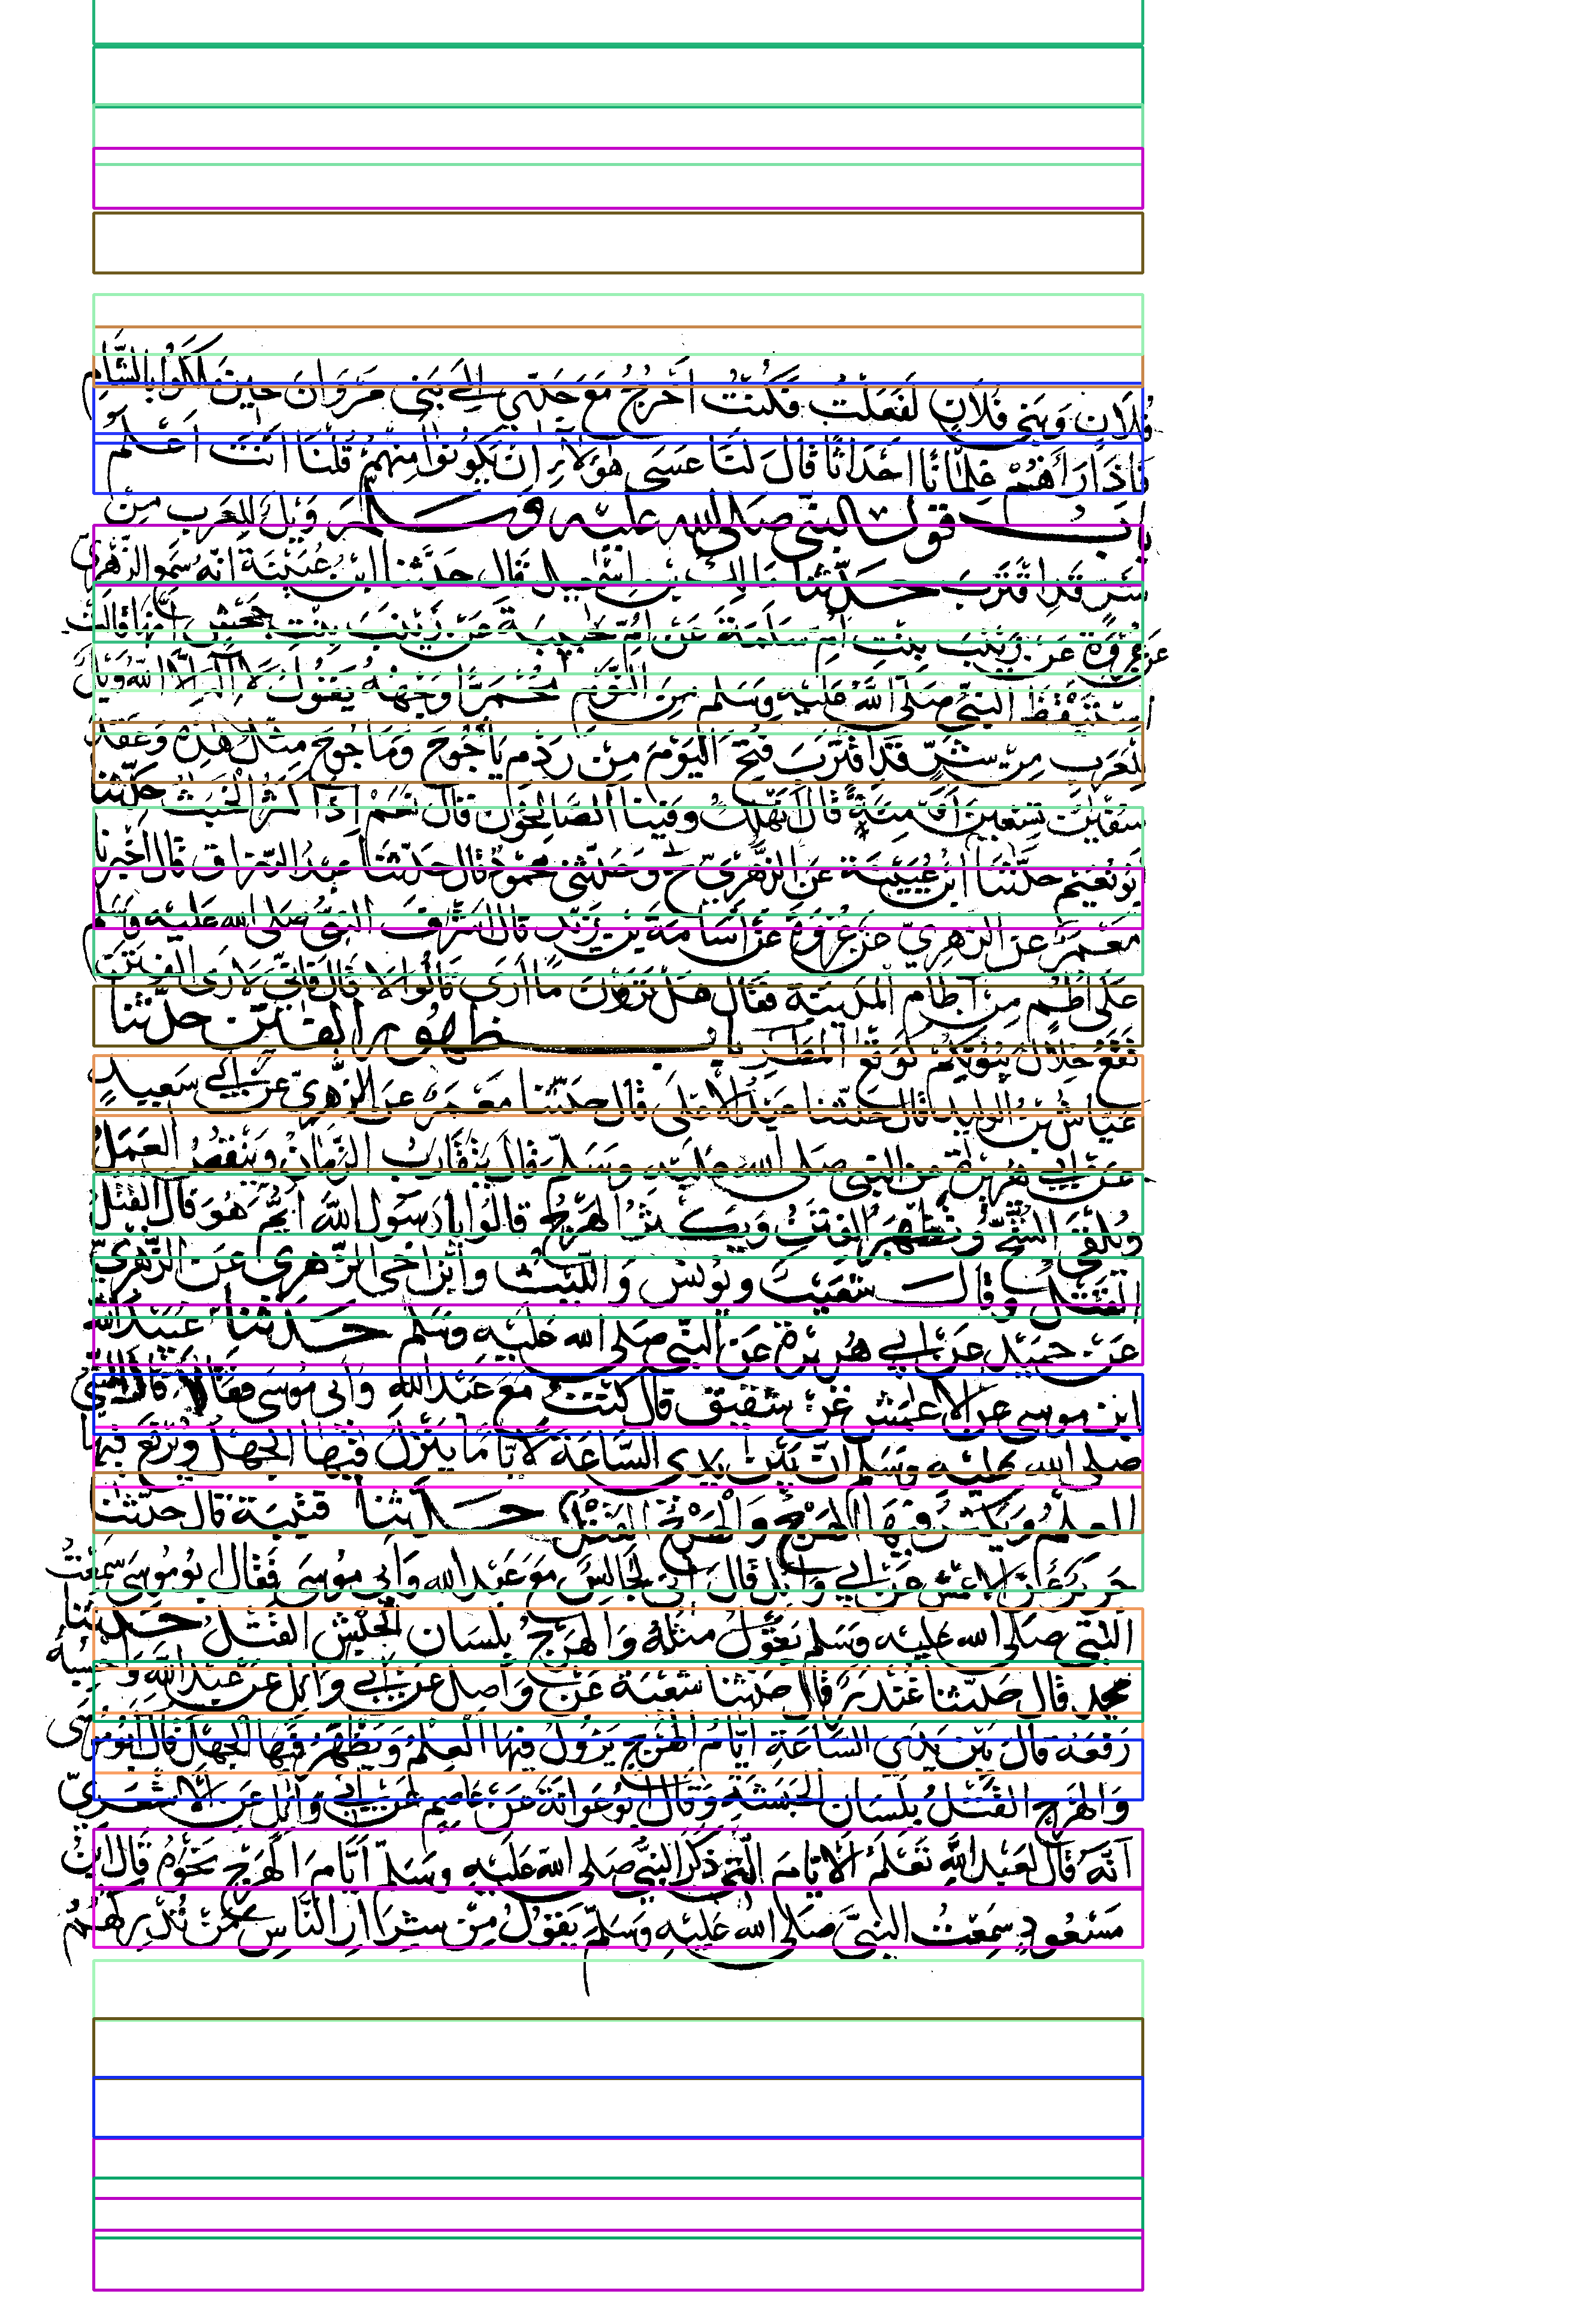 فلان وبني فلان لفعلت فكنت أخرج مع جدّي إلى بني مروان حين ملكوا بالشام
فاذا رأهم غلمانًا احداثًا قال لنا عسى هؤلاء ان يكونوا منهم قلنا انت اعلم
باب قول النبي صلى الله عليه وسلم ويل للعرب من
شر قد اقترب حدثنا مالك بن اسمعيل قال حدثنا ابن عيينة انه سمع الزهري
عن عروة عن زينب بنت ام سلمة عن ام حبيبة عن زينب بنت جحش انها قالت
استيقظ النبي صلى الله عليه وسلم من النوم محمرا وجهه يقول لا اله الا الله ويل
للعرب من شر قد اقترب فتح اليوم من ردم يأجوج ومأجوج مثل هذه وعقد
سفين تسعين او مئة قال انهلك وفينا الصالحون قال نعم اذا كثر الخبث حدثنا
بو نعيم حدثنا ابن عيينة عن الزهري ح وحدثني محمود قال حدثنا عبد الرزاق قال اخبرنا
معمر عن الزهري عن عروة عن أسامة بن زيد قال اشرف النبي صلى الله عليه وسلم
على اطم من آطام المدينة فقال هل ترون ما أرى قالوا لا قال فاني لارى الفتن
تقع خلال بيوتكم كوقع المطر باب ظهور الفتن حدثنا
عياش بن الوليد قال حدثنا عبد الاعلى قال حدثنا معمر عن الزهري عن سعيد
عن ابي هريرة عن النبي صلى الله عليه وسلم قال يتقارب الزمان وينقص العمل
ويلقى الشح وتظهر الفتن ويكثر الهرج قالوا يا رسول الله أيم هو قال القتل
القتل وقال شعيب ويونس والليث وابن اخي الزهري عن الزهري
عن حميد عن ابي هريرة عن النبي صلى الله عليه وسلم حدثنا عبيد الله
ابن موسى عن الاعمش عن شقيق قال كنت مع عبد الله وابي موسى فقالا قال النبي
صلى الله عليه وسلم ان بين يدي الساعة لاياما ينزل فيها الجهل ويرفع فيها
العلم ويكثر فيها الهرج والهرج القتل حدثنا قتيبة قال حدثنا
جرير عن الاعمش عن ابي وائل قال اني لجالس مع عبد الله وأبي موسى فقال ابو موسى سمعت
النبي صلى الله عليه وسلم يقول مثله والهرج بلسان الحبش القتل حدثنا
محمد قال حدثنا غندر قال حدثنا شعبة عن واصل عن ابي وائل عن عبد الله واحسبه
رفعه قال بين يدي الساعة ايام الهرج يزول فيها العلم ويظهر فيها الجهل قال ابو موسى
والهرج القتل بلسان الحبشة وقال ابو عوانة عن عاصم عن ابي وائل عن الاشعري
انه قال لعبد الله تعلم الايام التي ذكر النبي صلى الله عليه وسلم أيام الهرج نحوه قال ابن
مسعود سمعت النبي صلى الله عليه وسلم يقول من شرار الناس من تدركهم